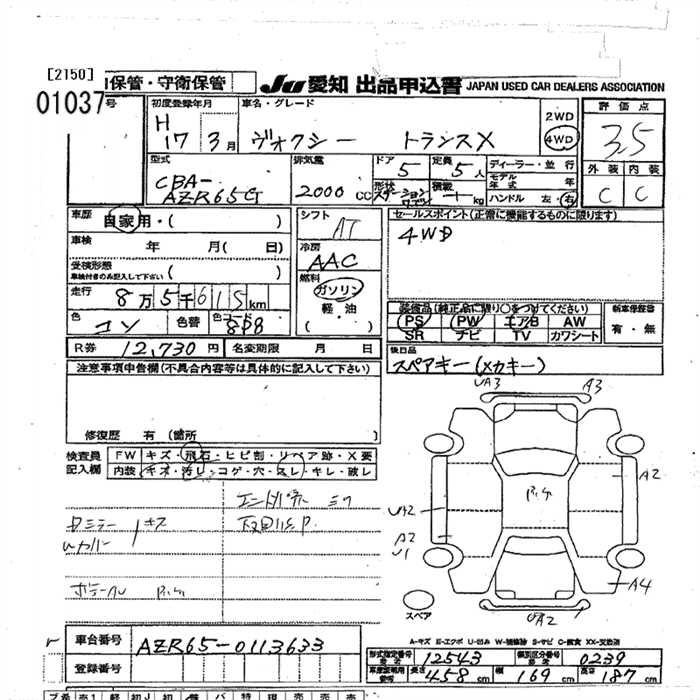 [2150]
保管・守衛保管
JU 愛知 出品申込書 JAPAN USED CAR DEALERS ASSOCIATION
01037 号
初度登録年月 車名・グレード
H 17 3月 ヴォクシー トランスX
2WD
4WD
評価点
3.5
外装 内装
C C
型式 排気量 ドア 定員 ディーラー・並行
CBA-
AZR65G 2000 CC 5 5人
形状 ステーションワゴン 積載 - kg
モデル年式 年
ハンドル 左・右
車歴 自家用・( )
車検 年 月( 日)
受検形態
車検付きのみ記入して下さい ( )
走行 8万5千615km
色 コン 色替 色コード 8P8
シフト AT
冷房 AAC
燃料 ガソリン
軽・油
( )
セールスポイント(正常に機能するものに限ります)
4WD
装備品(純正品に限り○をつけてください)
PS PW エアB AW
SR ナビ TV カワシート
新車保証書
有・無
R券 12,730円 名変期限 月 日
後日品
スペアキー(メカキー)
注意事項申告欄(不具合内容等は具体的に記入して下さい)
修復歴 有(箇所 )
検査員
記入欄
FW キズ・飛石・ヒビ割・リペア跡・X要
内装 キズ・汚レ・コゲ・穴・スレ・キレ・破レ
UA3 A3
A2
UA2
A2
U1
A4
UA2
スペア
A-キズ E-エクボ U-凹み W-補修跡 S-サビ C-腐食 XX-交換済
車台番号 AZR65-0113633
登録番号
型式指定番号 12543 類別区分番号 0239
長さ 458cm 幅 169cm 高さ 187cm